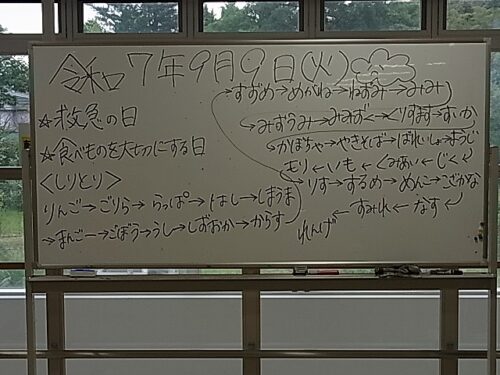 令和7年9月9日(火)
☆救急の日
☆食べものを大切にする日
<しりとり>
りんご→ごりら→らっぱ→はし→しまうま
→まんごー→ごぼう→うし→しずおか→からす
→すずめ→めがね→ねずみ→みみ
→みずうみ→みみずく→くりすます→すいか
→かぼちゃ→やきそば→ばれいしょ→
もり←いも←くみあい←じく
りす→するめ→めんこ→こざかな
←すみれ←なす
れんげ